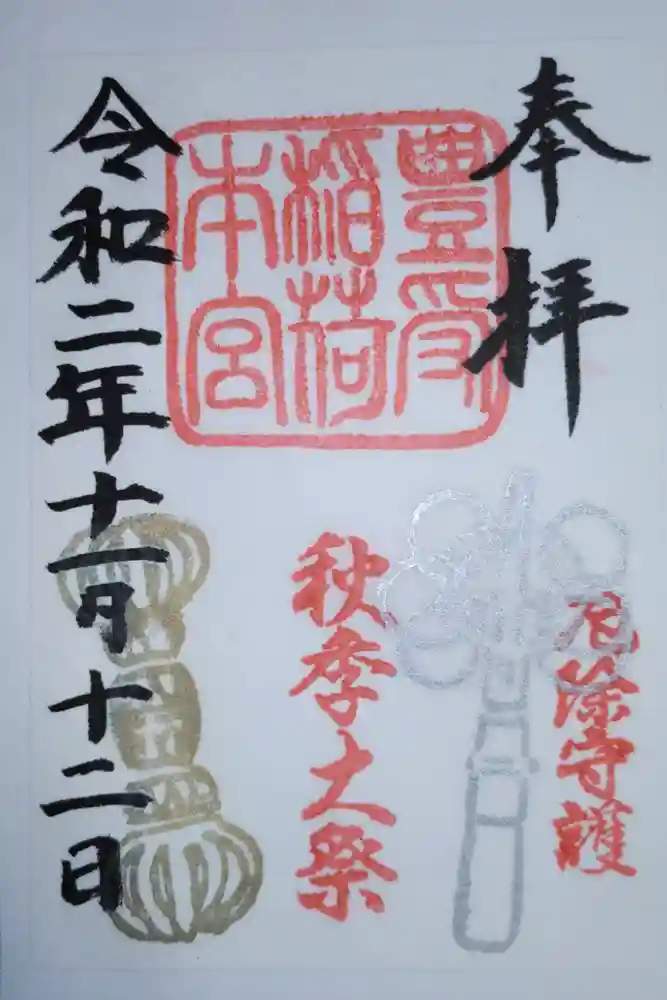 奉拝
厄除守護
豊受
稲荷
本宮
秋季大祭
令和二年十一月十二日